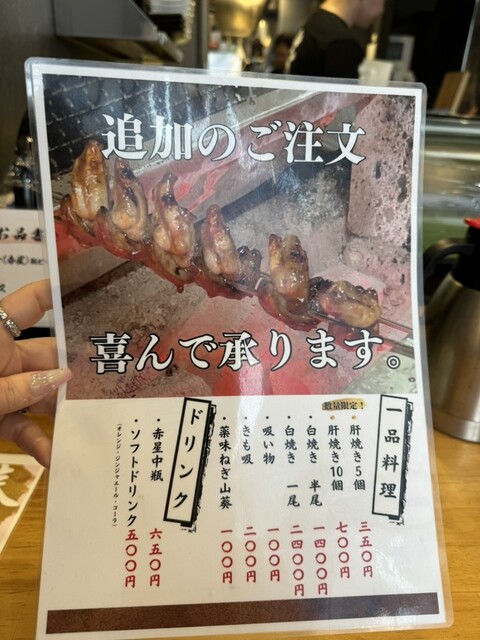 追加のご注文
喜んで承ります。
一品料理
数量限定!
・肝焼き5個 三五〇円
・肝焼き10個 七〇〇円
・白焼き 半尾 一四〇〇円
・白焼き 一尾 二四〇〇円
・吸い物 一〇〇円
・きも吸 二〇〇円
・薬味ねぎ山葵 一〇〇円
ドリンク
・赤星中瓶 六五〇円
・ソフトドリンク 五〇〇円
(オレンジ・ジンジャエール・コーラ)
お品書